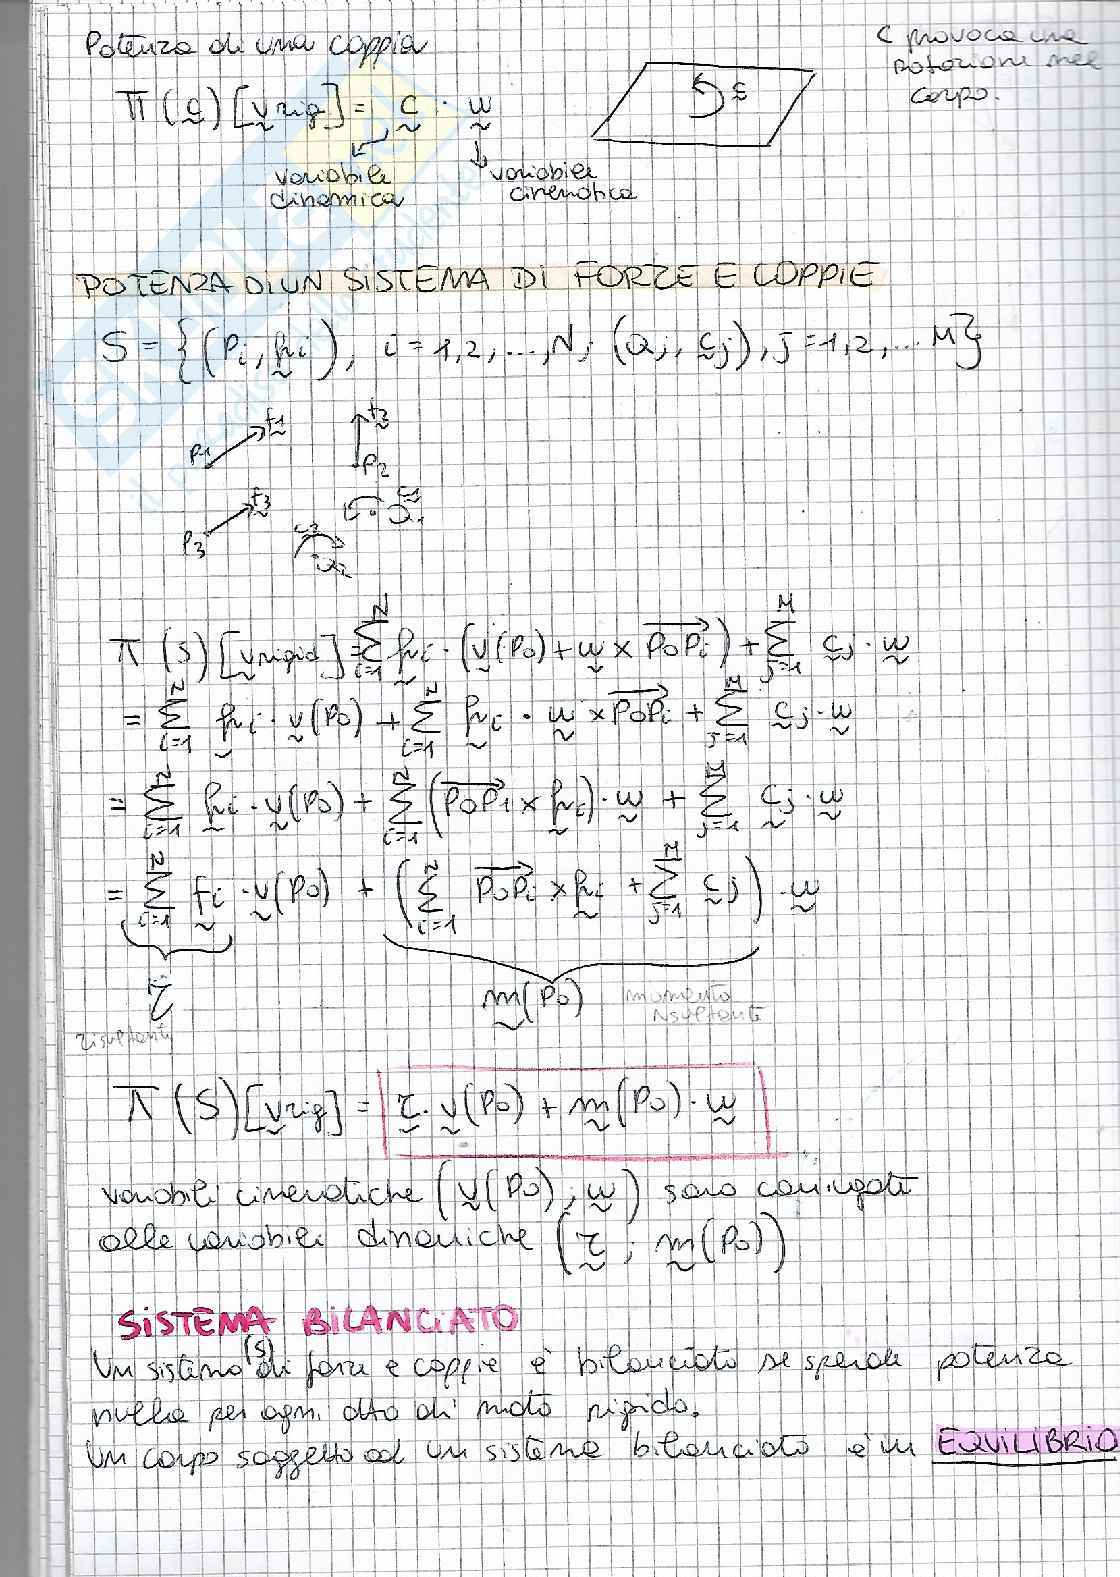 Potenza di una coppia
C provoca una
rotazione nel
corpo.
π (c) [v rig] = c · w
c
variabile
dinamica
variabile
cinematica
POTENZA DI UN SISTEMA DI FORZE E COPPIE
S = {(Pi, fi), i = 1,2, ..., N; (Qj, cj), j = 1,2, ... M}
P1 f1
f2
P2
P3 f3
c1
Q1
c2
Q2
π (S) [v rigid] = Σ i=1 N fi · (v(P0) + w × P0Pi) + Σ j=1 M cj · w
= Σ i=1 N fi · v(P0) + Σ i=1 N fi · w × P0Pi + Σ j=1 M cj · w
= Σ i=1 N fi · v(P0) + Σ i=1 N (P0Pi × fi) · w + Σ j=1 M cj · w
= Σ i=1 N fi · v(P0) + (Σ i=1 N P0Pi × fi + Σ j=1 M cj) · w
r
risultante
m(P0) momento
risultante
π (S) [v rig] = r · v(P0) + m(P0) · w
variabili cinematiche (v(P0) ; w) sono coniugate
alle variabili dinamiche (r ; m(P0))
SISTEMA BILANCIATO
Un sistema (S) di forze e coppie è bilanciato se spende potenza
nulla per ogni atto di moto rigido.
Un corpo soggetto ad un sistema bilanciato è in EQUILIBRIO